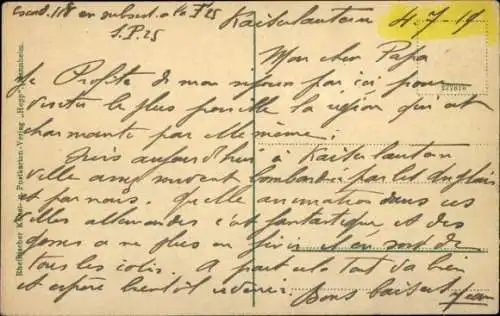 Kaiserslautern 4-7-19
S.P.25
Mon cher Papa
Je Profite de mon séjour par ici pour
visiter le plus possible la région qui est
charmante par elle même.
Suis aujourd'hui à Kaiserslautern
ville assez souvent bombardée par les Anglais
et par nous. Quelle animation dans ces
villes allemandes c'est fantastique et des
gosses a ne plus en finir il en sort de
tous les cotés. A part cela tout va bien
et espère bientôt revenir. Bons baisers
Jean
Rheinischer Kunst- u. Postkarten-Verlag „Hepp" Mannheim.